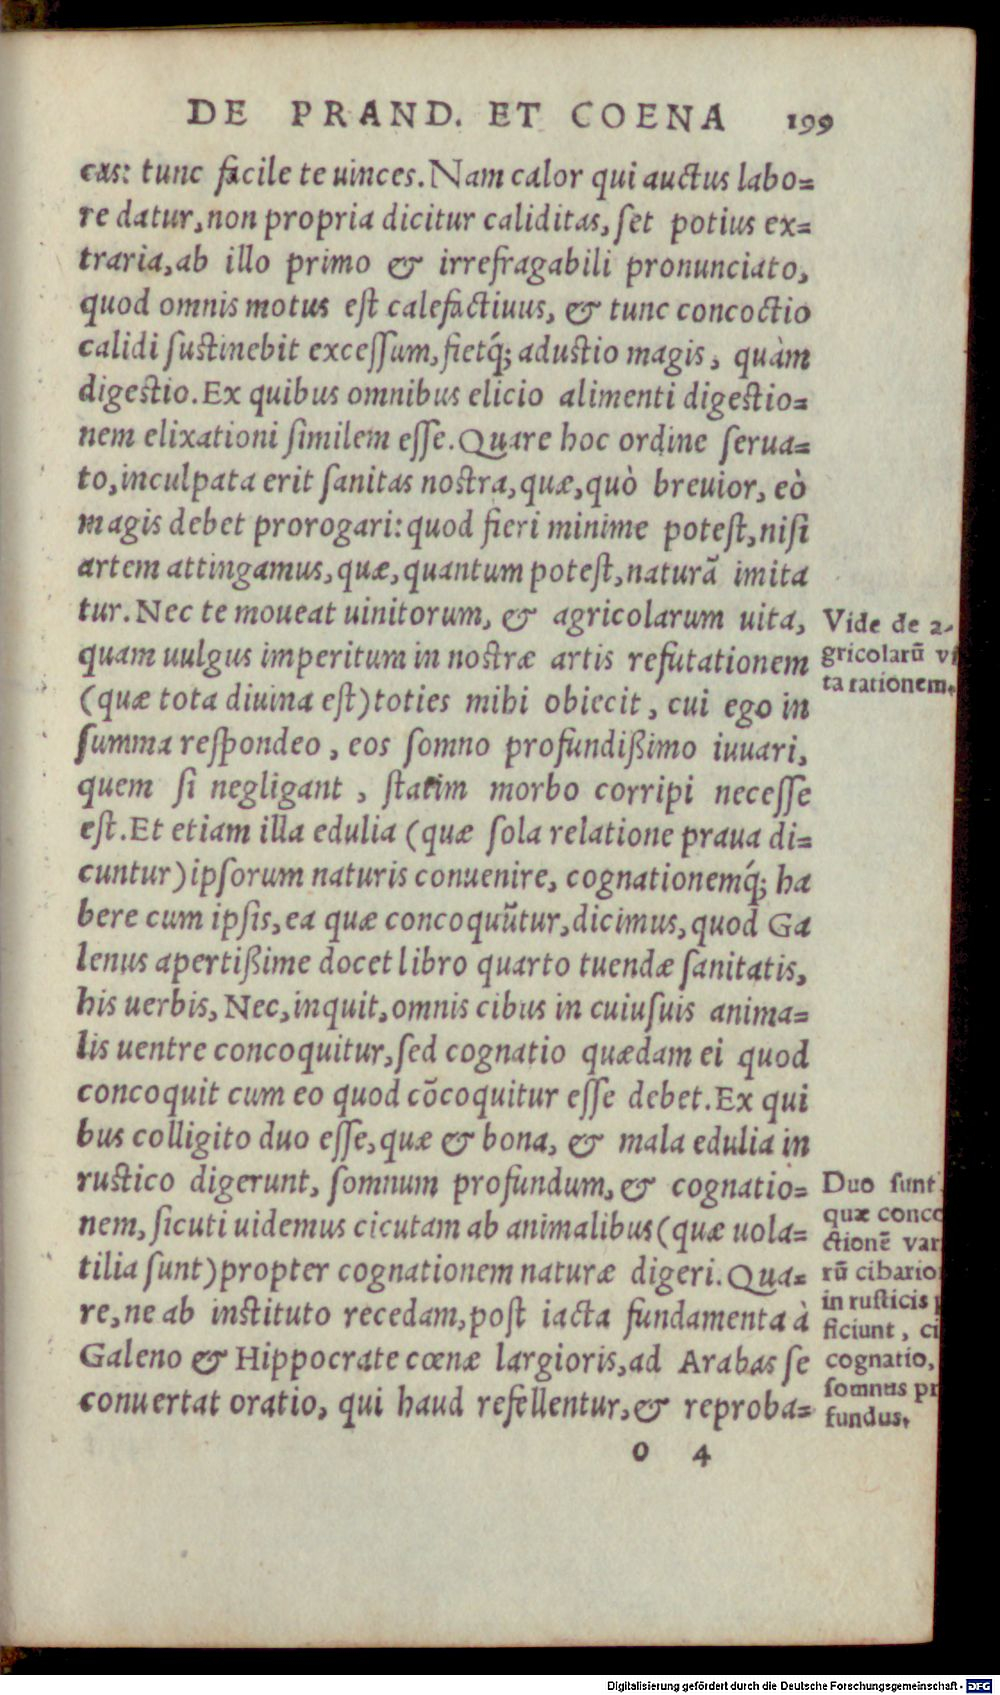 DE PRAND. ET COENA 199
cas: tunc facile te uinces. Nam calor qui auctus labo=
re datur, non propria dicitur caliditas, ſet potius ex=
traria, ab illo primo & irrefragabili pronunciato,
quod omnis motus eſt calefactiuus, & tunc concoctio
calidi ſuſtinebit exceſſum, fietq́; aduſtio magis, quàm
digeſtio. Ex quibus omnibus elicio alimenti digeſtio=
nem elixationi ſimilem eſſe. Quare hoc ordine ſerua=
to, inculpata erit ſanitas noſtra, quæ, quò breuior, eò
magis debet prorogari: quod fieri minime poteſt, niſi
artem attingamus, quæ, quantum poteſt, naturã imita
tur. Nec te moueat uinitorum, & agricolarum uita,
quam uulgus imperitum in noſtræ artis refutationem
(quæ tota diuina eſt) toties mihi obiecit, cui ego in
ſumma reſpondeo, eos ſomno profundißimo iuuari,
quem ſi negligant, ſtatim morbo corripi neceſſe
eſt. Et etiam illa edulia (quæ ſola relatione praua di=
cuntur) ipſorum naturis conuenire, cognationemq́; ha
bere cum ipſis, ea quæ concoquũtur, dicimus, quod Ga
lenus apertißime docet libro quarto tuendæ ſanitatis,
his uerbis, Nec, inquit, omnis cibus in cuiuſuis anima=
lis uentre concoquitur, ſed cognatio quædam ei quod
concoquit cum eo quod cõcoquitur eſſe debet. Ex qui
bus colligito duo eſſe, quæ & bona, & mala edulia in
ruſtico digerunt, ſomnum profundum, & cognatio=
nem, ſicuti uidemus cicutam ab animalibus (quæ uola=
tilia ſunt) propter cognationem naturæ digeri. Qua=
re, ne ab inſtituto recedam, poſt iacta fundamenta à
Galeno & Hippocrate cœnæ largioris, ad Arabas ſe
conuertat oratio, qui haud refellentur, & reproba=
o 4
Vide de a-
gricolarũ vi
ta rationem.
Duo ſunt
quæ conco
ctionẽ var
rũ cibario
in ruſticis p
ficiunt, ci
cognatio,
ſomnus pr
fundus.
Digitalisierung gefördert durch die Deutsche Forschungsgemeinschaft - DFG